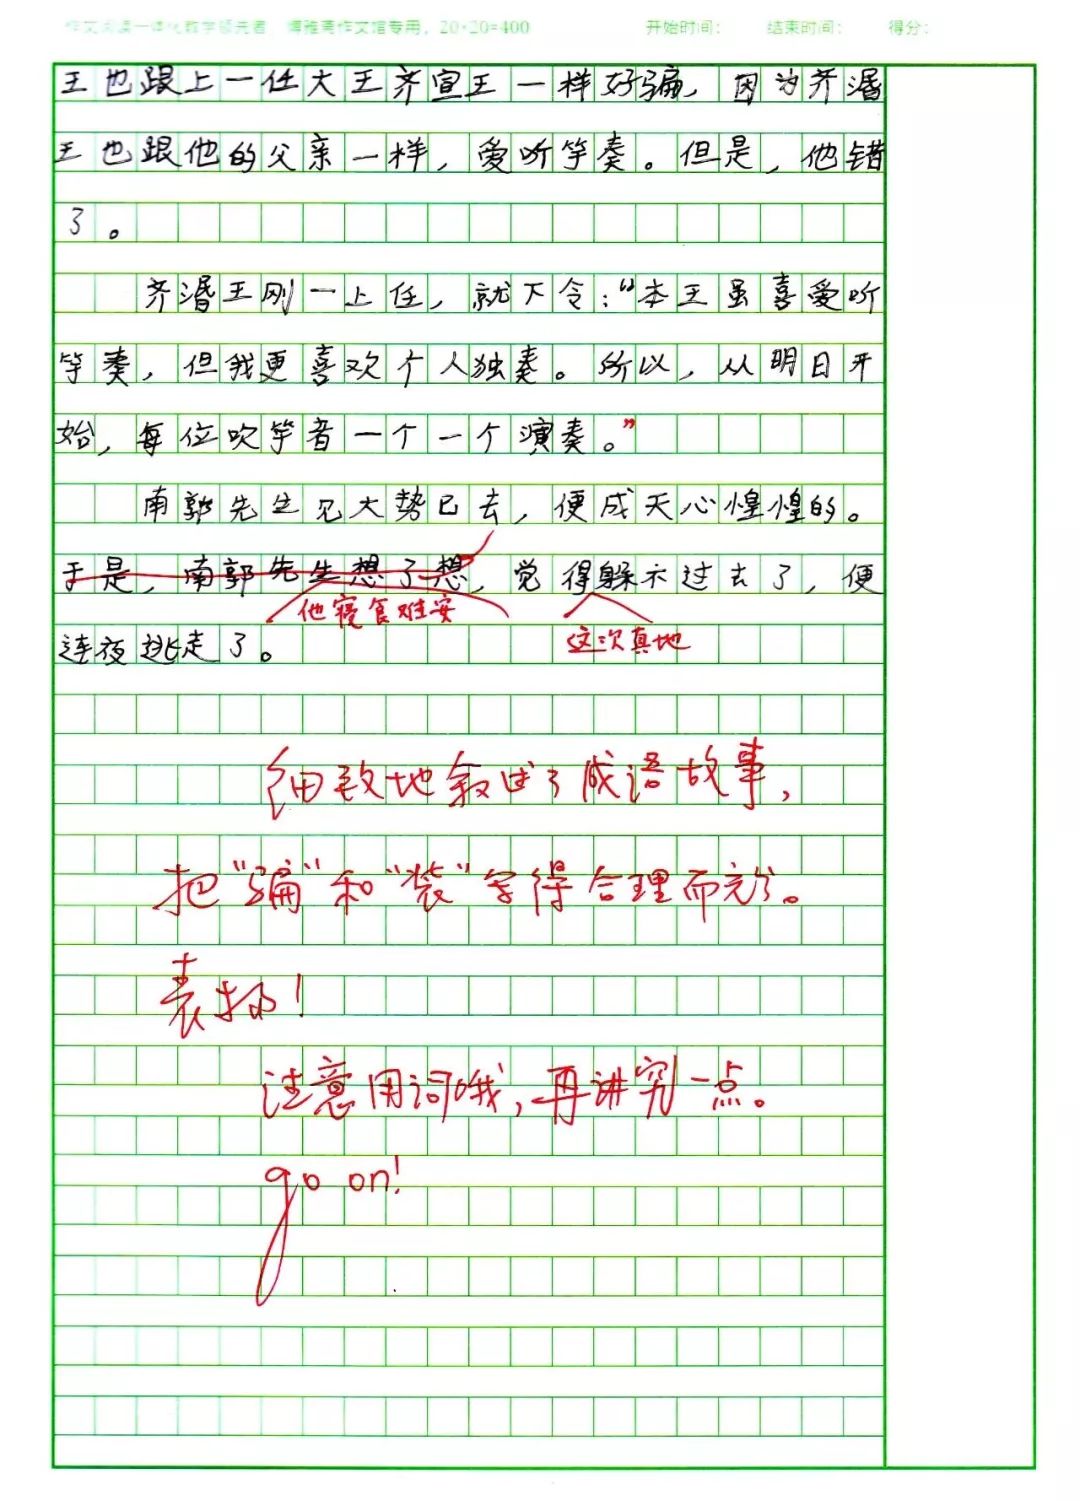 作文阅读一体化教学领先者 博雅斋作文馆专用，20*20=400 开始时间： 结束时间： 得分：
王也跟上一任大王齐宣王一样好骗，因为齐湣
王也跟他的父亲一样，爱听竽奏。但是，他错
了。
齐湣王刚一上任，就下令：“本王虽喜爱听
竽奏，但我更喜欢个人独奏。所以，从明日开
始，每位吹竽者一个一个演奏。”
南郭先生见大势已去，便成天心惶惶的。
于是，南郭先生想了想，觉得躲不过去了，便
他寝食难安 这次真地
连夜逃走了。
细致地叙述了成语故事，
把“骗”和“装”写得合理而充分。
表扬！
注意用词哦，再讲究一点。
go on!